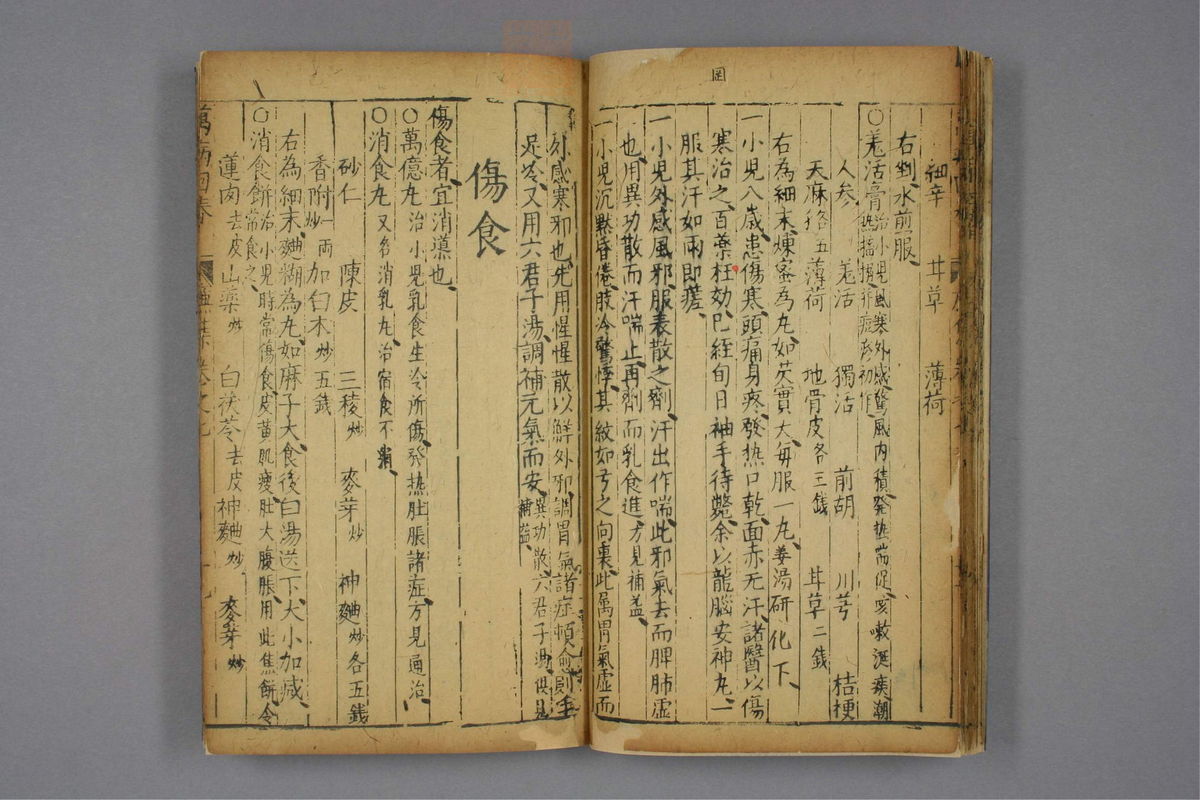 細辛 甘草 薄荷
右剉水煎服
○羌活膏治小兒風寒外感驚風内積發热喘促咳嗽涎痰潮
热搐搦并痘疹初作
人参 羌活 獨活 前胡 川芎 桔梗
天麻各五 薄荷 地骨皮各三錢 甘草二錢
右為細末煉蜜為丸如芡實大每服一丸姜湯研化下
一小兒八歲患傷寒頭痛身疼發热口乾面赤无汗諸醫以傷
寒治之百藥枉効已經旬日袖手待斃余以龍腦安神丸一
服其汗如雨即瘥
一小兒外感風邪服表散之劑汗出作喘此邪氣去而脾肺虚
也用異功散而汗喘止再劑而乳食進方見補益
一小兒沉默昏倦肢冷驚悸其紋如弓之向裏此属胃氣虚而
外感寒邪也先用惺惺散以鮮外邪調胃氣諸症頓愈但手
足冷又用六君子湯調補元氣而安異功散六君子湯俱見
補益
傷食
傷食者宜消導也
○萬億丸治小兒乳食生冷所傷發热肚脹諸症方見通治
○消食丸又名消乳丸治宿食不消
砂仁 陳皮 三稜炒 麥芽炒 神麯炒各五錢
香附炒一兩 加白术炒五錢
右為細末麯糊為丸如麻子大食後白湯送下大小加减
○消食餅治小兒時常傷食皮黄肌瘦肚大腹脹用此焦餅令
常食之
蓮肉去皮 山藥炒 白茯苓去皮 神麯炒 麥芽炒
萬病回春